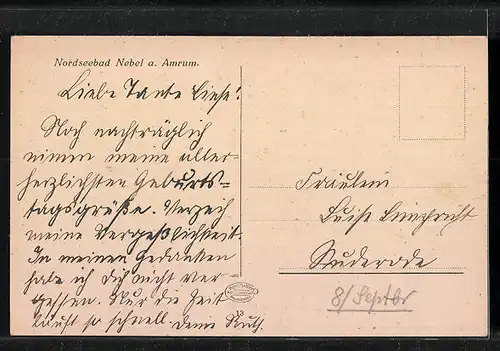 Nordseebad Nebel a. Amrum.
Liebe Tante Liese!
Noch nachträglich
nimm meine aller-
herzlichsten Geburts-
tagsgrüße. Verzeih
meine Vergeßlichkeit.
In meinen Gedanken
habe ich Dich nicht ver-
gessen. Nur die Zeit
läuft so schnell. Deine Ruth.
Fräulein
Luise
Suderode
8/Septbr